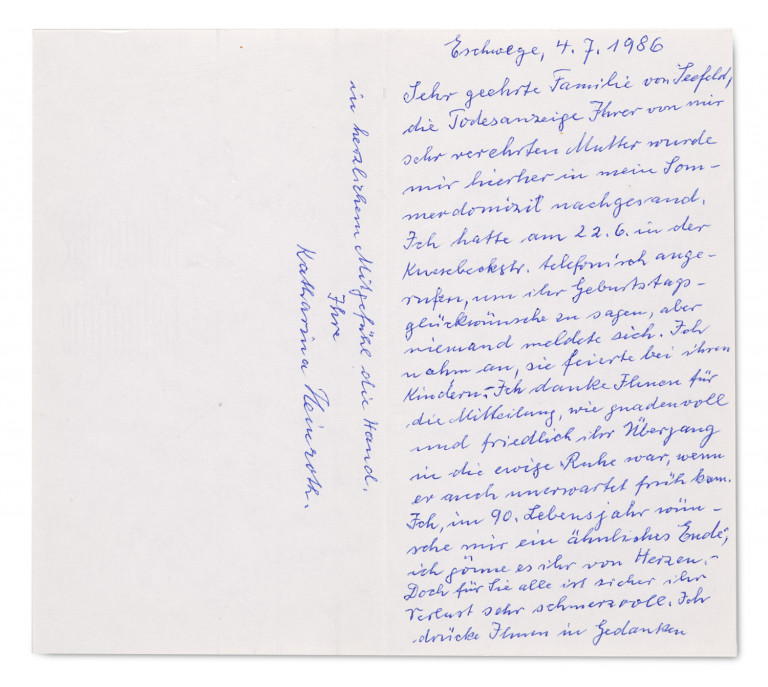 Eschwege, 4.7.1986
Sehr geehrte Familie von Seefeld,
die Todesanzeige Ihrer von mir
sehr verehrten Mutter wurde
mir hierher in mein Som-
merdomizil nachgesand.
Ich hatte am 22.6. in der
Knesebeckstr. telefonisch ange-
rufen, um ihr Geburtstags-
glückwünsche zu sagen, aber
niemand meldete sich. Ich
nahm an, sie feierte bei ihren
Kindern.- Ich danke Ihnen für
die Mitteilung, wie gnadenvoll
und friedlich ihr Übergang
in die ewige Ruhe war, wenn
er auch unerwartet früh kam.
Ich, im 90. Lebensjahr wün-
sche mir ein ähnliches Ende,
ich gönne es ihr von Herzen.-
Doch für Sie alle ist sicher ihr
Verlust sehr schmerzvoll. Ich
drücke Ihnen in Gedanken
in herzlichem Mitgefühl die Hand.
Ihre
Katharina Heinroth.